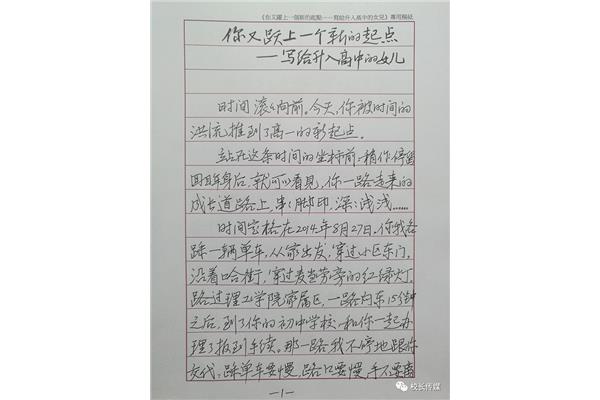 《你又躍上一個新的起點——寫給升入高中的女兒》專用稿紙
你又跃上一个新的起点
——写给升入高中的女儿
时间滚滚向前。今天,你被时间的
洪流推到了高一的新起点。
站在这条时间的坐标前,稍作停留
回眸身后,就可以看见,你一路走来的
成长道路上,串串脚印,深深浅浅……
时间定格在2014年8月27日。你我各
踩一辆单车,从家出发,穿过小区东门,
沿着哈街,穿过麦当劳旁的红绿灯,
路过理工学院家属区,一路向东15分钟
之后,到了你的初中学校,和你一起办
理了报到手续。那一路我不停地跟你
交代,踩单车要慢,路口要慢,手不要离
—1—
校长传媒